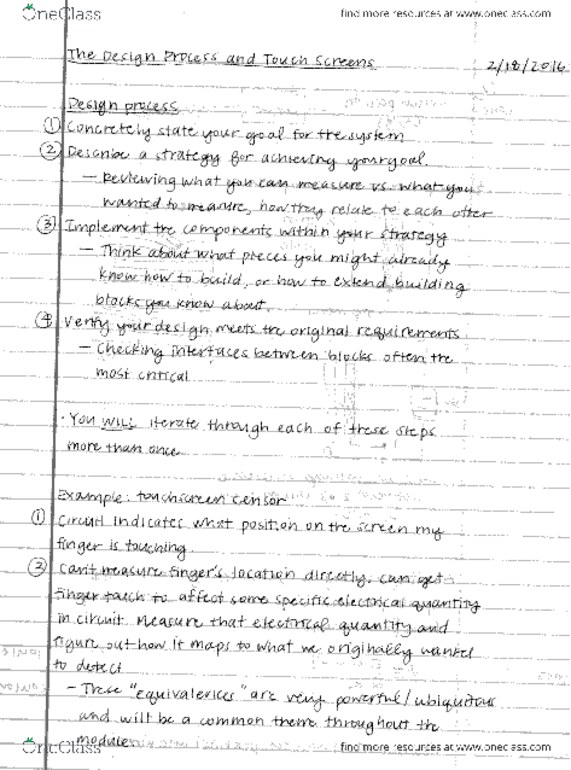 OneClass
find more resources at www.oneclass.com
The Design Process and Touch Screens
2/18/2016
Design process
① Concretely state your goal for the system
② Describe a strategy for achieving your goal.
— Reviewing what you can measure vs. what you
wanted to measure, how they relate to each other
③ Implement the components within your strategy
— Think about what pieces you might already
know how to build, or how to extend building
blocks you know about.
④ Verify your design meets the original requirements
— Checking interfaces between blocks often the
most critical
· You will iterate through each of these steps
more than once
Example: touchscreen censor
① Circuit indicates what position on the screen my
finger is touching
② Can't measure finger's location directly, can get
finger touch to affect some specific electrical quantity
in circuit. Measure that electrical quantity and
figure out how it maps to what we originally wanted
to detect
— These "equivalences" are very powerful/ubiquitous
and will be a common theme throughout the
module
OneClass
find more resources at www.oneclass.com